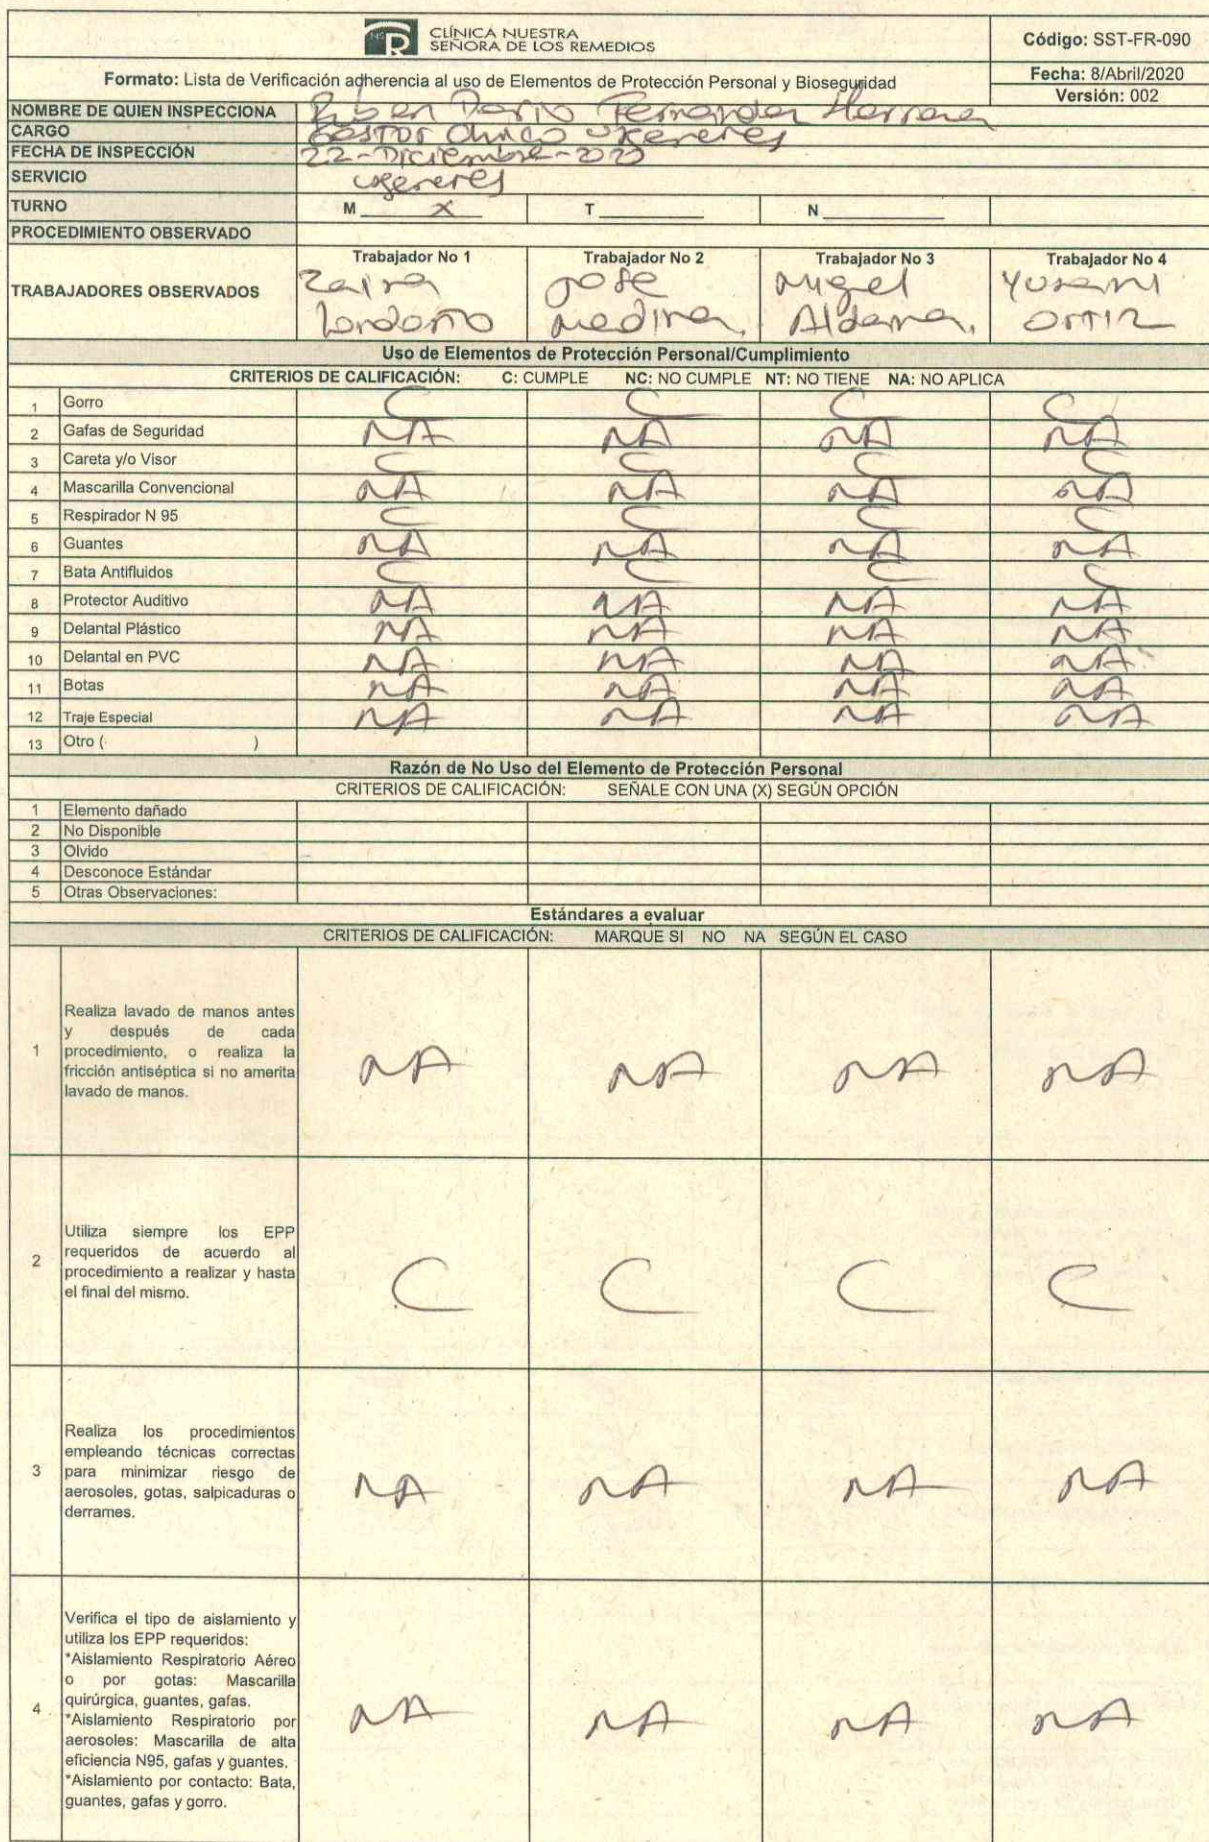 NSR CLÍNICA NUESTRA
SEÑORA DE LOS REMEDIOS
Código: SST-FR-090
Formato: Lista de Verificación adherencia al uso de Elementos de Protección Personal y Bioseguridad
Fecha: 8/Abril/2020
Versión: 002
NOMBRE DE QUIEN INSPECCIONA Ruben Dario Fernandez Herrera
CARGO Gestor Clinico
FECHA DE INSPECCIÓN 22-Diciembre-2020
SERVICIO
TURNO M X T N
PROCEDIMIENTO OBSERVADO
TRABAJADORES OBSERVADOS
Trabajador No 1 Trabajador No 2 Trabajador No 3 Trabajador No 4
Zaira Jose Migel Yurani
Londoño Medina, Aldana, Ortiz
Uso de Elementos de Protección Personal/Cumplimiento
CRITERIOS DE CALIFICACIÓN: C: CUMPLE NC: NO CUMPLE NT: NO TIENE NA: NO APLICA
1 Gorro C C C C
2 Gafas de Seguridad NA NA NA NA
3 Careta y/o Visor C C C C
4 Mascarilla Convencional NA NA NA NA
5 Respirador N 95 C C C C
6 Guantes NA NA NA NA
7 Bata Antifluidos C C C C
8 Protector Auditivo NA NA NA NA
9 Delantal Plástico NA NA NA NA
10 Delantal en PVC NA NA NA NA
11 Botas NA NA NA NA
12 Traje Especial NA NA NA NA
13 Otro ( )
Razón de No Uso del Elemento de Protección Personal
CRITERIOS DE CALIFICACIÓN: SEÑALE CON UNA (X) SEGÚN OPCIÓN
1 Elemento dañado
2 No Disponible
3 Olvido
4 Desconoce Estándar
5 Otras Observaciones:
Estándares a evaluar
CRITERIOS DE CALIFICACIÓN: MARQUE SI NO NA SEGÚN EL CASO
1
Realiza lavado de manos antes
y después de cada
procedimiento, o realiza la
fricción antiséptica si no amerita
lavado de manos.
NA NA NA NA
2
Utiliza siempre los EPP
requeridos de acuerdo al
procedimiento a realizar y hasta
el final del mismo.
C C C C
3
Realiza los procedimientos
empleando técnicas correctas
para minimizar riesgo de
aerosoles, gotas, salpicaduras o
derrames.
NA NA NA NA
4
Verifica el tipo de aislamiento y
utiliza los EPP requeridos:
*Aislamiento Respiratorio Aéreo
o por gotas: Mascarilla
quirúrgica, guantes, gafas.
*Aislamiento Respiratorio por
aerosoles: Mascarilla de alta
eficiencia N95, gafas y guantes.
*Aislamiento por contacto: Bata,
guantes, gafas y gorro.
NA NA NA NA